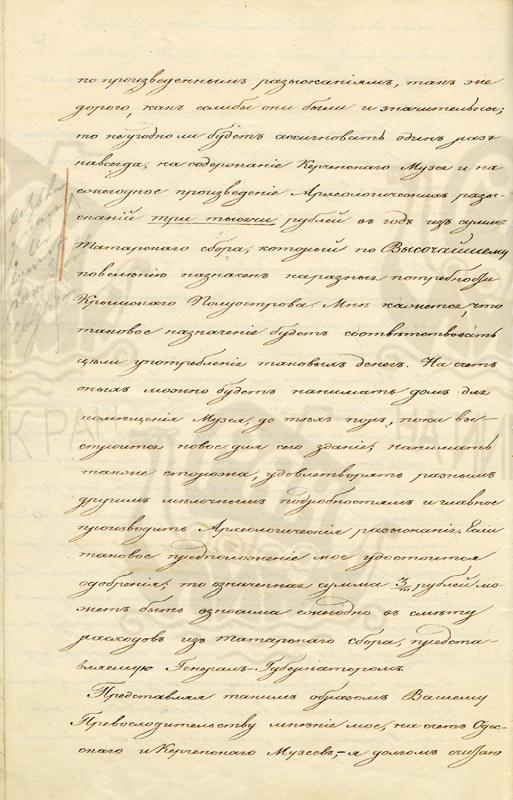 по произведеннымъ разысканіямъ, такъ же
дорого, какъ еслибы они были и значительны;
то неугодно ли будетъ ассигновать одинъ разъ
навсегда, на содержаніе Керченскаго Музея и на
ежегодное произведеніе Археологическихъ разы-
сканій три тысячи рублей въ годъ изъ суммъ
Татарскаго сбора, который по Высочайшему
повелѣнію назначенъ на разныя потребности
Крымскаго Полуострова. Мнѣ кажется, что
таковое назначеніе будетъ соотвѣтствовать
цѣли употребленія таковыхъ денегъ. На счетъ
оныхъ можно будетъ нанимать домъ для
помѣщенія Музея, до тѣхъ поръ, пока вы-
строится новое для сего зданіе; нанимать
также сторожа, удовлетворять разнымъ
другимъ мѣлочнымъ подробностямъ и главное
производить Археологическія разысканія. Если
таковое предположеніе мое удостоится
одобренія; то означенная сумма 3/т рублей мо-
жетъ быть вносима ежегодно въ смѣту
расходовъ изъ татарскаго сбора, предста-
вляемую Генералъ-Губернаторомъ.
Представляя такимъ образомъ Вашему
Превосходительству мнѣніе мое, на счетъ Одес-
скаго и Керченскаго Музеевъ, — я долгомъ считаю